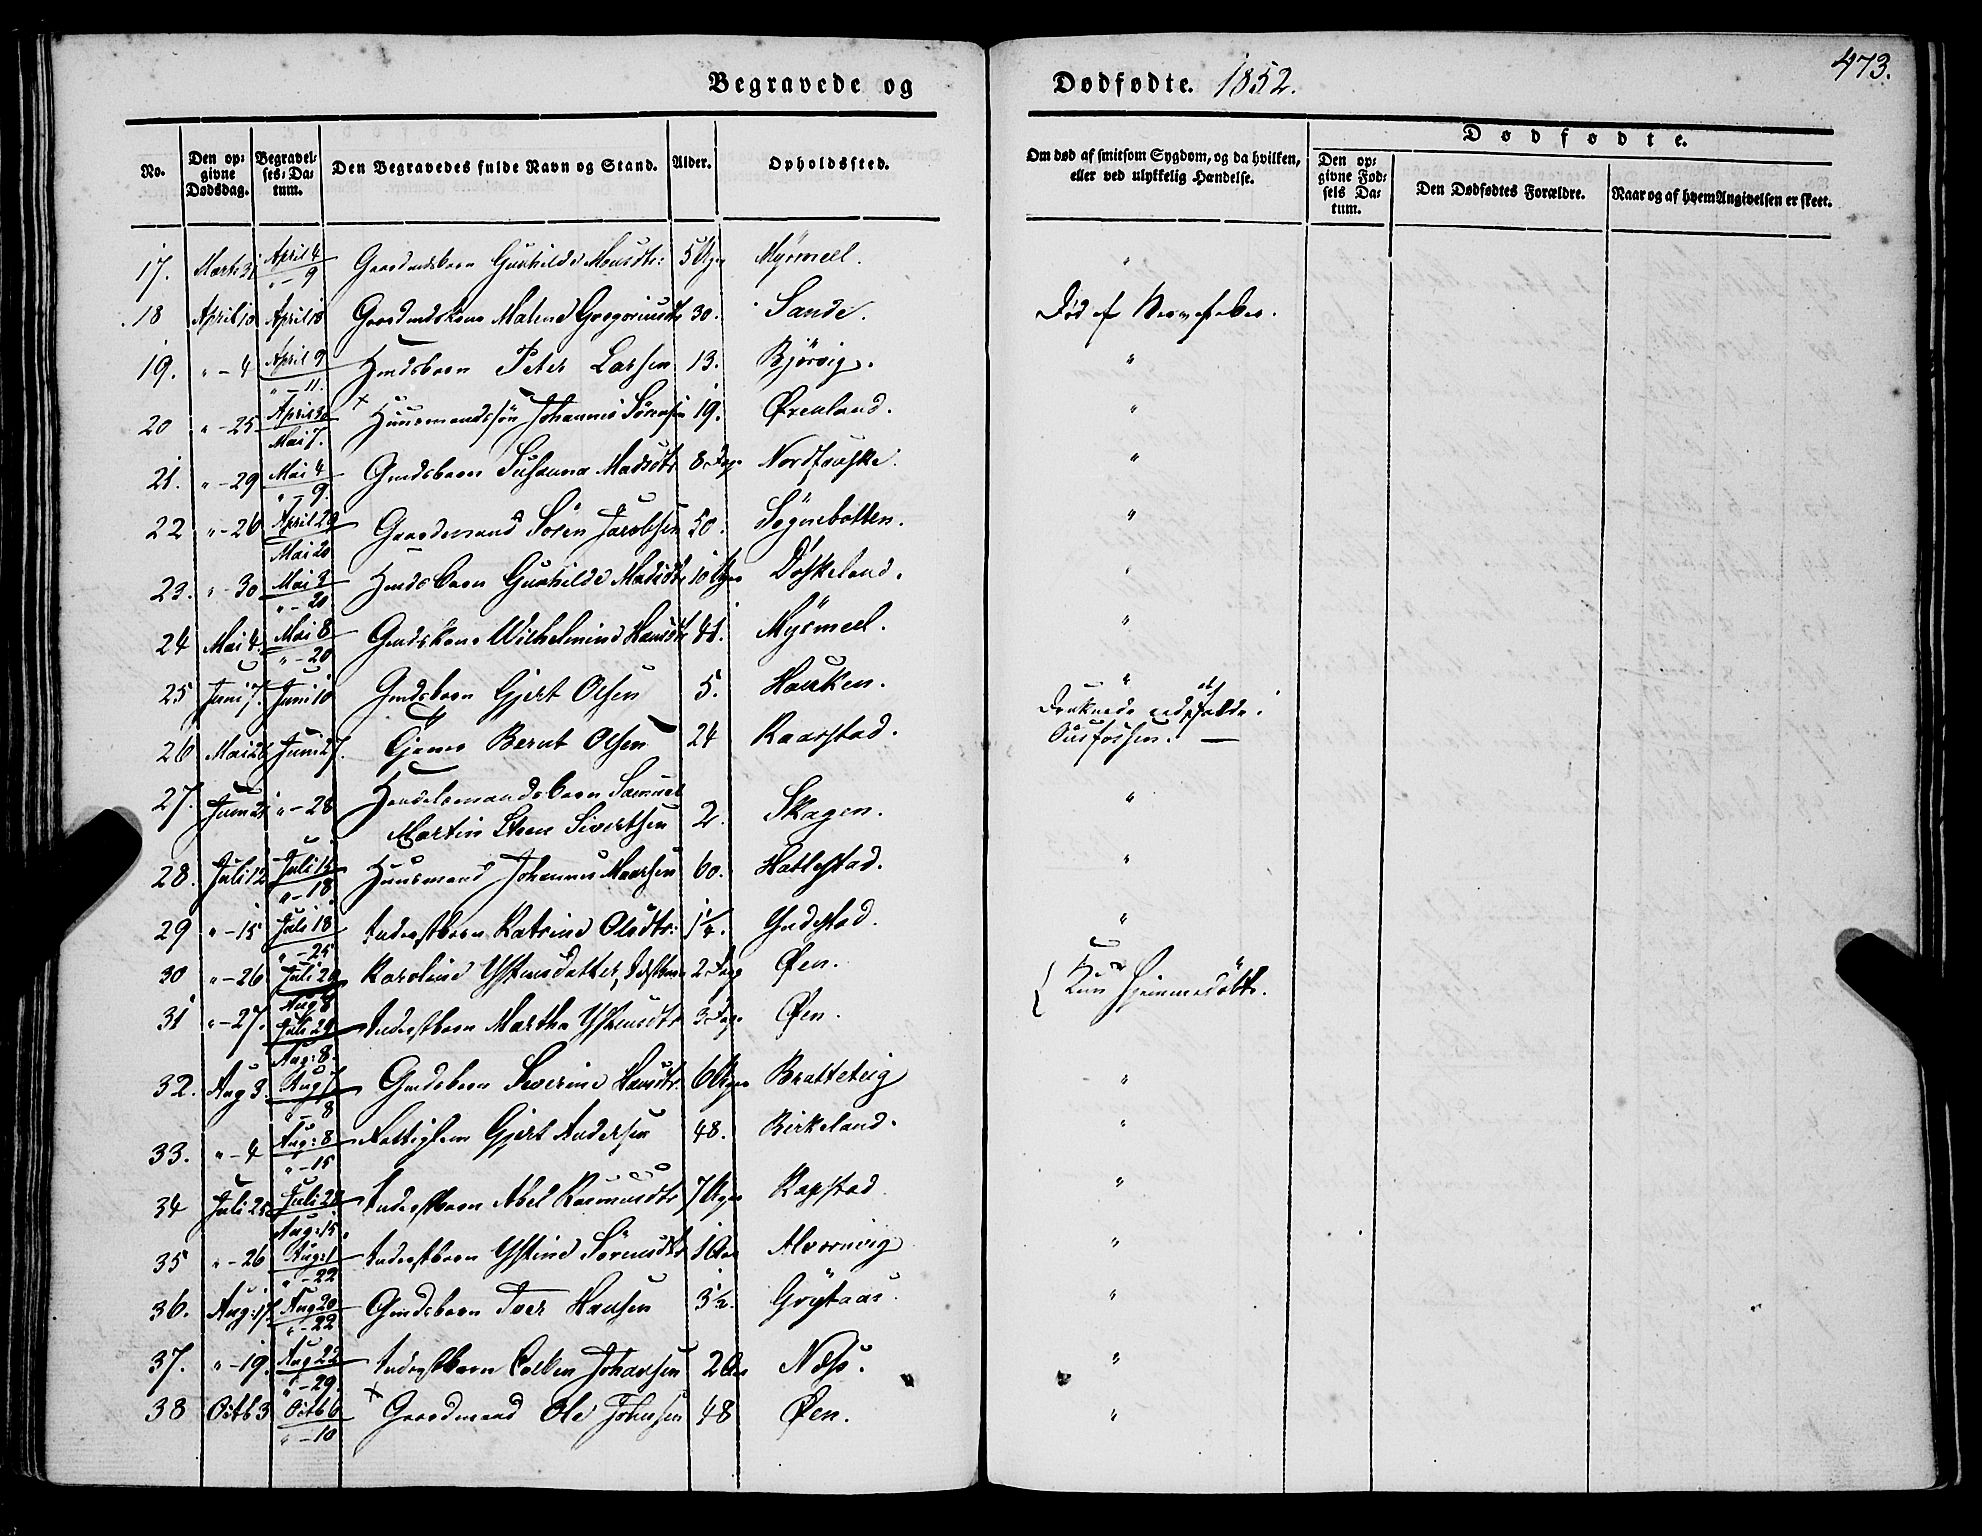 473.
Begravede og Dødfødte. 1852.
No. Den opgivne Dødsdag. Begravelses-Datum. Den Begravedes fulde Navn og Stand. Alder. Opholdssted. Om død af smitsom Sygdom, og da hvilken, eller ved ulykkelig Hændelse. Dødfødte. Den opgivne Fødsels Datum. Den Dødfødtes Forældre. Naar og af hvem Angivelsen er skeet.
17. Marts 31 April 4 " - 9 Gaardmdsbarn Gunhilde Monsdtr: 5 Uger Myrmell. "
18 April 10 April 18 Gaardmdskone Malene Gregoriusdtr 30. Sande. Død af Nervefeber.
19. " - 4 April 9 " - 11. Hmdsbarn Peter Larsen 13. Bjørvig. "
20 " - 25 April 30 Mai 7. × Huusmandssøn Johannes Sørensen 19. Øxenland. "
21. " - 29 Mai 4 " - 9. Gmdsbarn Susanna Madsdtr 8 Dage Nordfauske. "
22 " - 26 April 29 Mai 20 Gaardmand Søren Jacobsen 50. Søgnebotten. "
23. " - 30 Mai 9 " - 20 Hmdsbarn Gunhilde Madsdtr 10 Uger Døskeland. "
24 Mai 4. Mai 8 " - 20 Gmdskone Wilhelmine Hansdtr 41. Myrmell. "
25 Juni 7. Juni 10 Gmdsbarn Gjert Olsen 5. Hauken. "
26 Mai 26 Juni 27. Bernt Olsen 24 Kaarstad. Druknede ved at falde i Huusfossen. —
27. Juni 21 " - 28 Handelsmandsbarn Samuel Martin Steen Sivertsen 2. Skagen. "
28. Juli 12 Juli 15 " - 18 Huusmand Johannes Hansen 60. Hatlestad. "
29 " - 15 Juli 18 " - 25 Inderstbarn Katrine Olsdtr: 1 ½. Yndestad. "
30 " - 26 Juli 29 Aug 8 Karoline Ystensdatter, 2 Dage Øen. { Kun hjemmedøbte.
31 " - 27. Juli 29 Aug: 8. Inderstbarn Martha Ystensdtr 3 Dage Øen.
32. Aug 3. Aug 7 " - 8 Gmdsbarn Severine Hansdtr. 6 Uger Bratteteig "
33. " - 4 Aug: 8 " - 15 Fattiglem Gjert Andersen 48. Birkeland. "
34 Juli 25 Juli 28 Aug: 15. Inderstbarn Abel Rasmusdtr 7 Uger Kapstad "
35 " - 26 Aug: 1 " - 22 Inderstbarn Ystine Sørensdtr 1 Aar Alvornvig "
36. Aug: 17. Aug 20 " - 22 Gmdsbarn Iver Hansen 3 ½. Grytaas. "
37. " - 19. Aug 22 " - 29. Inderstbarn Colben Johansen 2 Aar Næss. "
38 Octb 3 Octb 6 " - 10 × Gaardmand Ole Johnsen 48 Øen. "